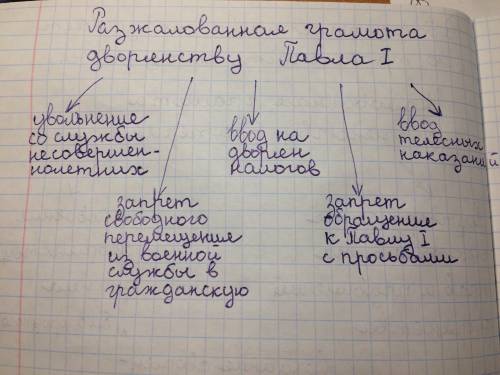 Разжалованная грамота
дворянству Павла I
увольнение
со службы
несовершен-
нолетних
ввод на
дворян
налогов
ввод
телесных
наказаний
запрет
свободного
перемещение
из военной
службы в
гражданскую
запрет
обращение
к Павлу I
с просьбами